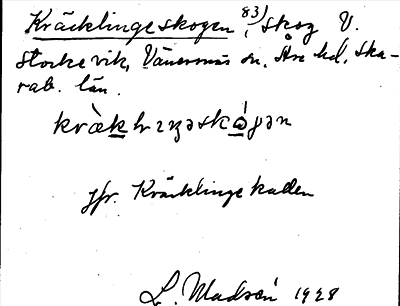 Kräcklingeskogen 83), skog V.
Storkevik, Vänersnäs sn. Åse hd, Ska-
rab. län.
jfr. Kräcklingekullen
L. Madsén 1928